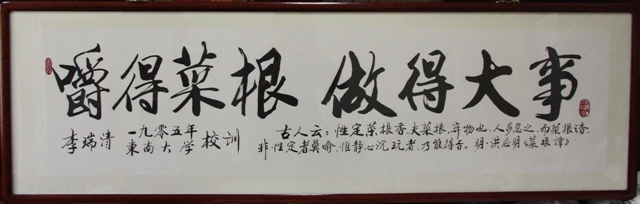 嚼得菜根 做得大事
李瑞清
一九零五年
東南大学
校训
古人云:性定菜根香.夫菜根、弃物也.人多忽之.而菜根
非性定者莫喻.惟静心沉玩者、乃能得旨.明·洪应明《菜根谭》